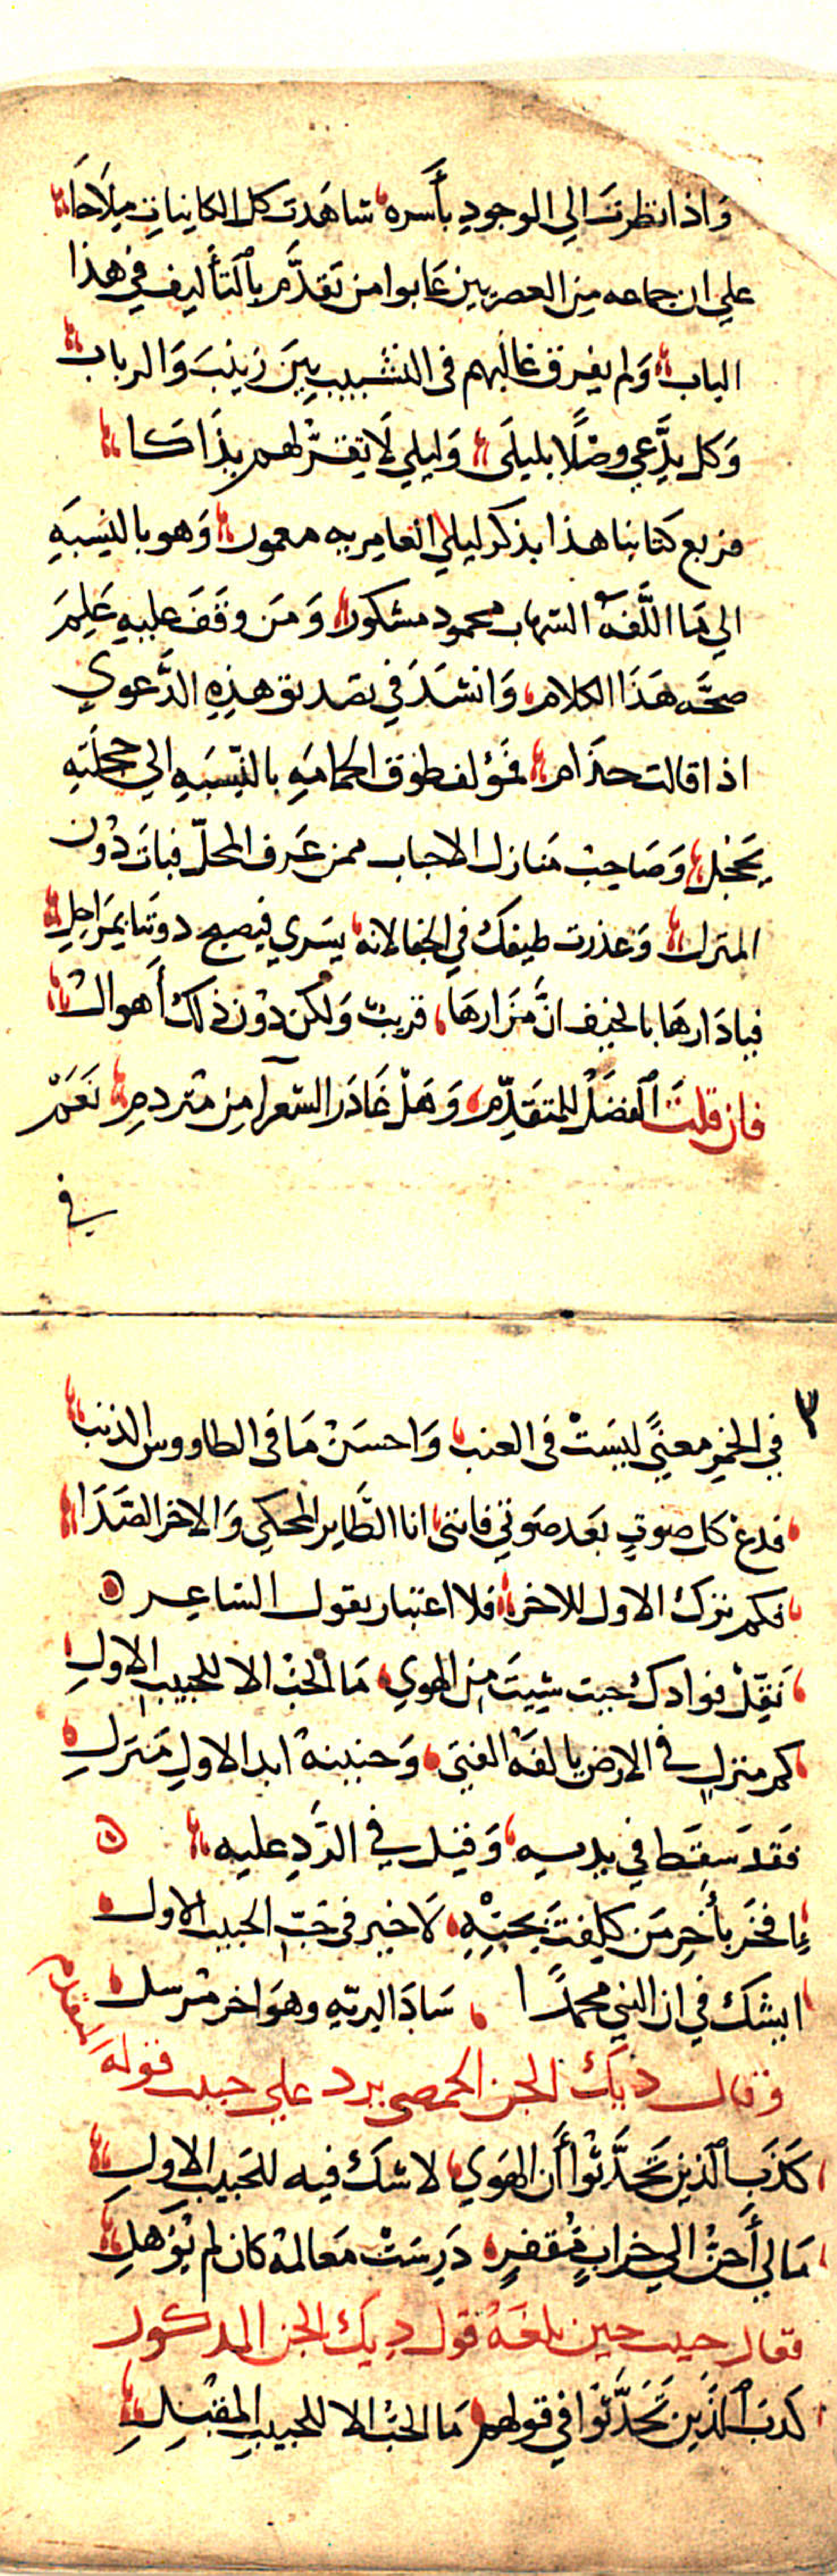 وَاذا نظرتَ الي الوجودِ بأَسره شاهَدت كل الكاينات مِلَاحَا
علي ان جماعه من العصريين عَابوا من تقدَّم بالتأليف في هذا
الباب وَلم يفرق غالبهم في التشبيب بين زينبَ وَالرباب
وَكل يدَّعي وصْلًا بليلَى وَليلي لَا تقرّ لهم بذَاكا
فربع كتابنا هذا بذكر ليلي العامريه معمور وَهو بالنِسبَهِ
الي مَا الَّفهُ الشهاب محمود مشكور وَمَن وقفَ عليهِ عَلِمَ
صحَّه هَذَا الكلام وَانشدَ في تصديق هذِهِ الدَّعوي
اذا قالت حذَام فمَؤلف طوق الحمامَهِ بالنِّسبَهِ الي حجلَتهِ
يَحْجِل وَصَاحبُ مَنازل الاحباب ممن عَرف المحلّ فباتَ دُون
المنزل وَعذرت طيفكَ في الجفا لانه يَسَري فيصبح دوننا بمَرَاحِلِ
فيا دَارهَا بالخيف انَّ مَزَارهَا قريبٌ وَلكن دُون ذلكَ أَهوال
فان قلتَ الفضَلُ للمتقَدِّم وَهَلْ غَادَر الشعرآ مِن مُتردمِ نَعَمْ
في
٣
في الخمرِ معنًي ليسَتْ في العنب وَاحسَنْ مَا في الطاووس الذنب
فدعْ كل صوتٍ بعَد صَوتي فانني انا الطَّاير المحكي وَالاخر الصَدَا
فكم ترك الاول للاخر فلا اعتبار بقول الشاعر
نَقِّلْ فوادكَ حيت شِيتَ من الهوي مَا الحُبُّ الا للحبيبِ الاولِ
كم منزلٍ في الارض يالفهُ الفتَى وَحنينهُ ابدا لاولِ مَنزلِ
فَقد سَقَط في يديهِ وَقيل في الرَّدِ عليه
افخَر بأَخِرِ مَن كلِفتَ بحبِّهِ لَا خير في حُبّ الحبيب الاول
ايشكّ في ان النبي محمدًا سَادَ البريّهِ وهوَ اخر مُرسل
وقال ديكُ الجن الحمصي يرد علي حبيب قوله المتقدم
كَذَبَ الذين تَحَدَّثُوا أَن الهَوي لا شكّ فيه للحَبيبِ الاولِ
مَا لي أَحنُّ الي خرابٍ مُقفرٍ دَرِسَتْ مَعالمهُ كان لم يُؤهلِ
فقال حبيب حين بلغهُ قول ديك الجن المدكور
كَذبَ الذَين تَحَدَّثوَا في قولهم مَا الحُبُّ الا للحبيبِ المقبْلِ